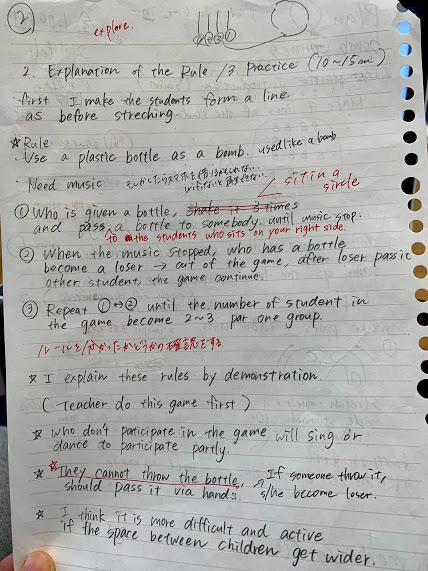 12
explore.
④ ③ ② ①
2. Explanation of the Rule / 3. Practice (10~15m)
・first I make the students form a line
as before streching.
☆ Rule
・Use a plastic bottle as a bomb. used like a bomb
・Need music もしかしたらスマホを
sit in a
circle
① Who is given a bottle, shake it 3 times
and pass a bottle to somebody, until music stop.
to the students who sits on your right side.
② When the music stopped, who has a bottle
become a loser → out of the game, after loser pass it
other student, the game continue.
③ Repeat ①↔②, until the number of student in
the game become 2~3 par one group.
ルールを分かったかどうかの確認をする
☆ I explain these rules by demonstration.
( Teacher do this game first )
☆ who don't participate in the game, will sing or
dance to participate partly.
☆ They cannot throw the bottle, → If someone throw it,
should pass it via hands. s/he become loser.
☆ I think it is more difficult and active
if the space between children get wider.